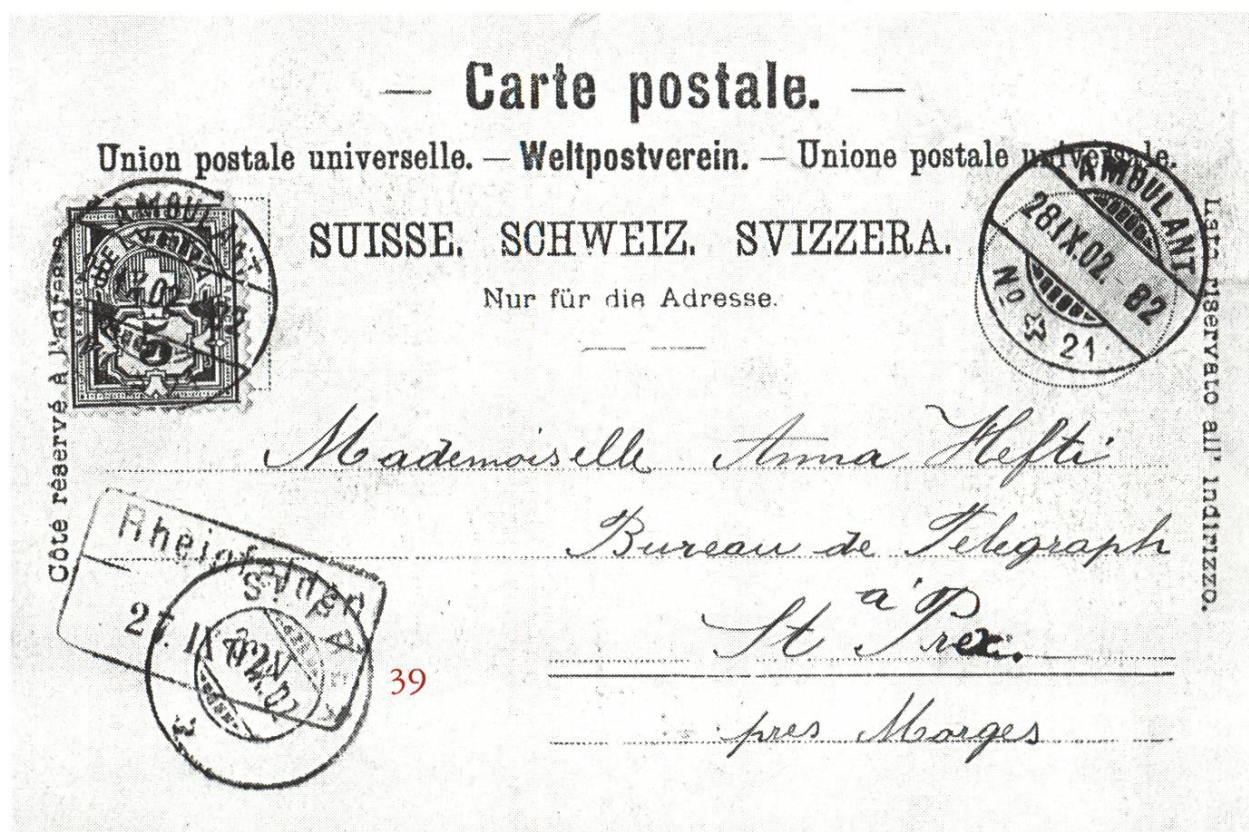 — Carte postale. —
Union postale universelle. — Weltpostverein. — Unione postale universale.
SUISSE. SCHWEIZ. SVIZZERA.
Nur für die Adresse.
Côté réservé à l'adresse
Lato riservato all' indirizzo.
AMBULANT
AMBULANT
28.IX.02.-82
No 21
Mademoiselle Anna Hefti
Bureau de Telegraph
à
St Prex.
pres Morges
Rheinfelden
27. IX
39